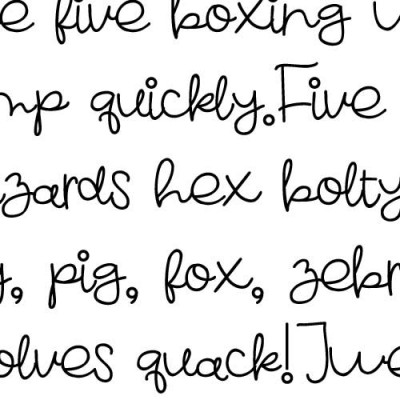 e five boxing w
mp quickly.Five
zards hex bolty
y, pig, fox, zebr
olves quack!Twe